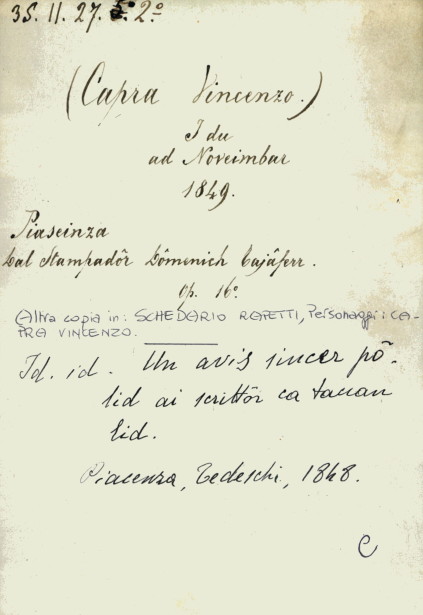 35. II. 27. 5° 2°
(Capra Vincenzo.)
I du
ad Noveimbar
1849.
Piaseinza
Dal Stampadôr Dômenich Tajâferr.
Op. 16°.
(Altra copia in: SCHEDARIO RAPETTI, Personaggi: CA-
PRA VINCENZO.
Id. id. Un avis sincer pô-
lid ai scrittôr ca tacan
lid.
Piacenza, Tedeschi, 1848.
C